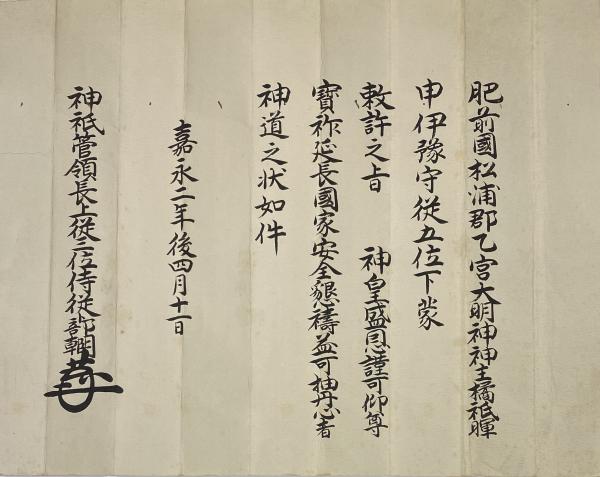 肥前國松浦郡乙宮大明神神主橘祇暉
申伊豫守從五位下蒙
敕許之旨　神皇盛恩謹可仰尊
寳祚延長國家安全懇禱益可抽丹心者
神道之状如件
嘉永二年後四月十一日
神祇管領長上從三位侍從卜部朝臣